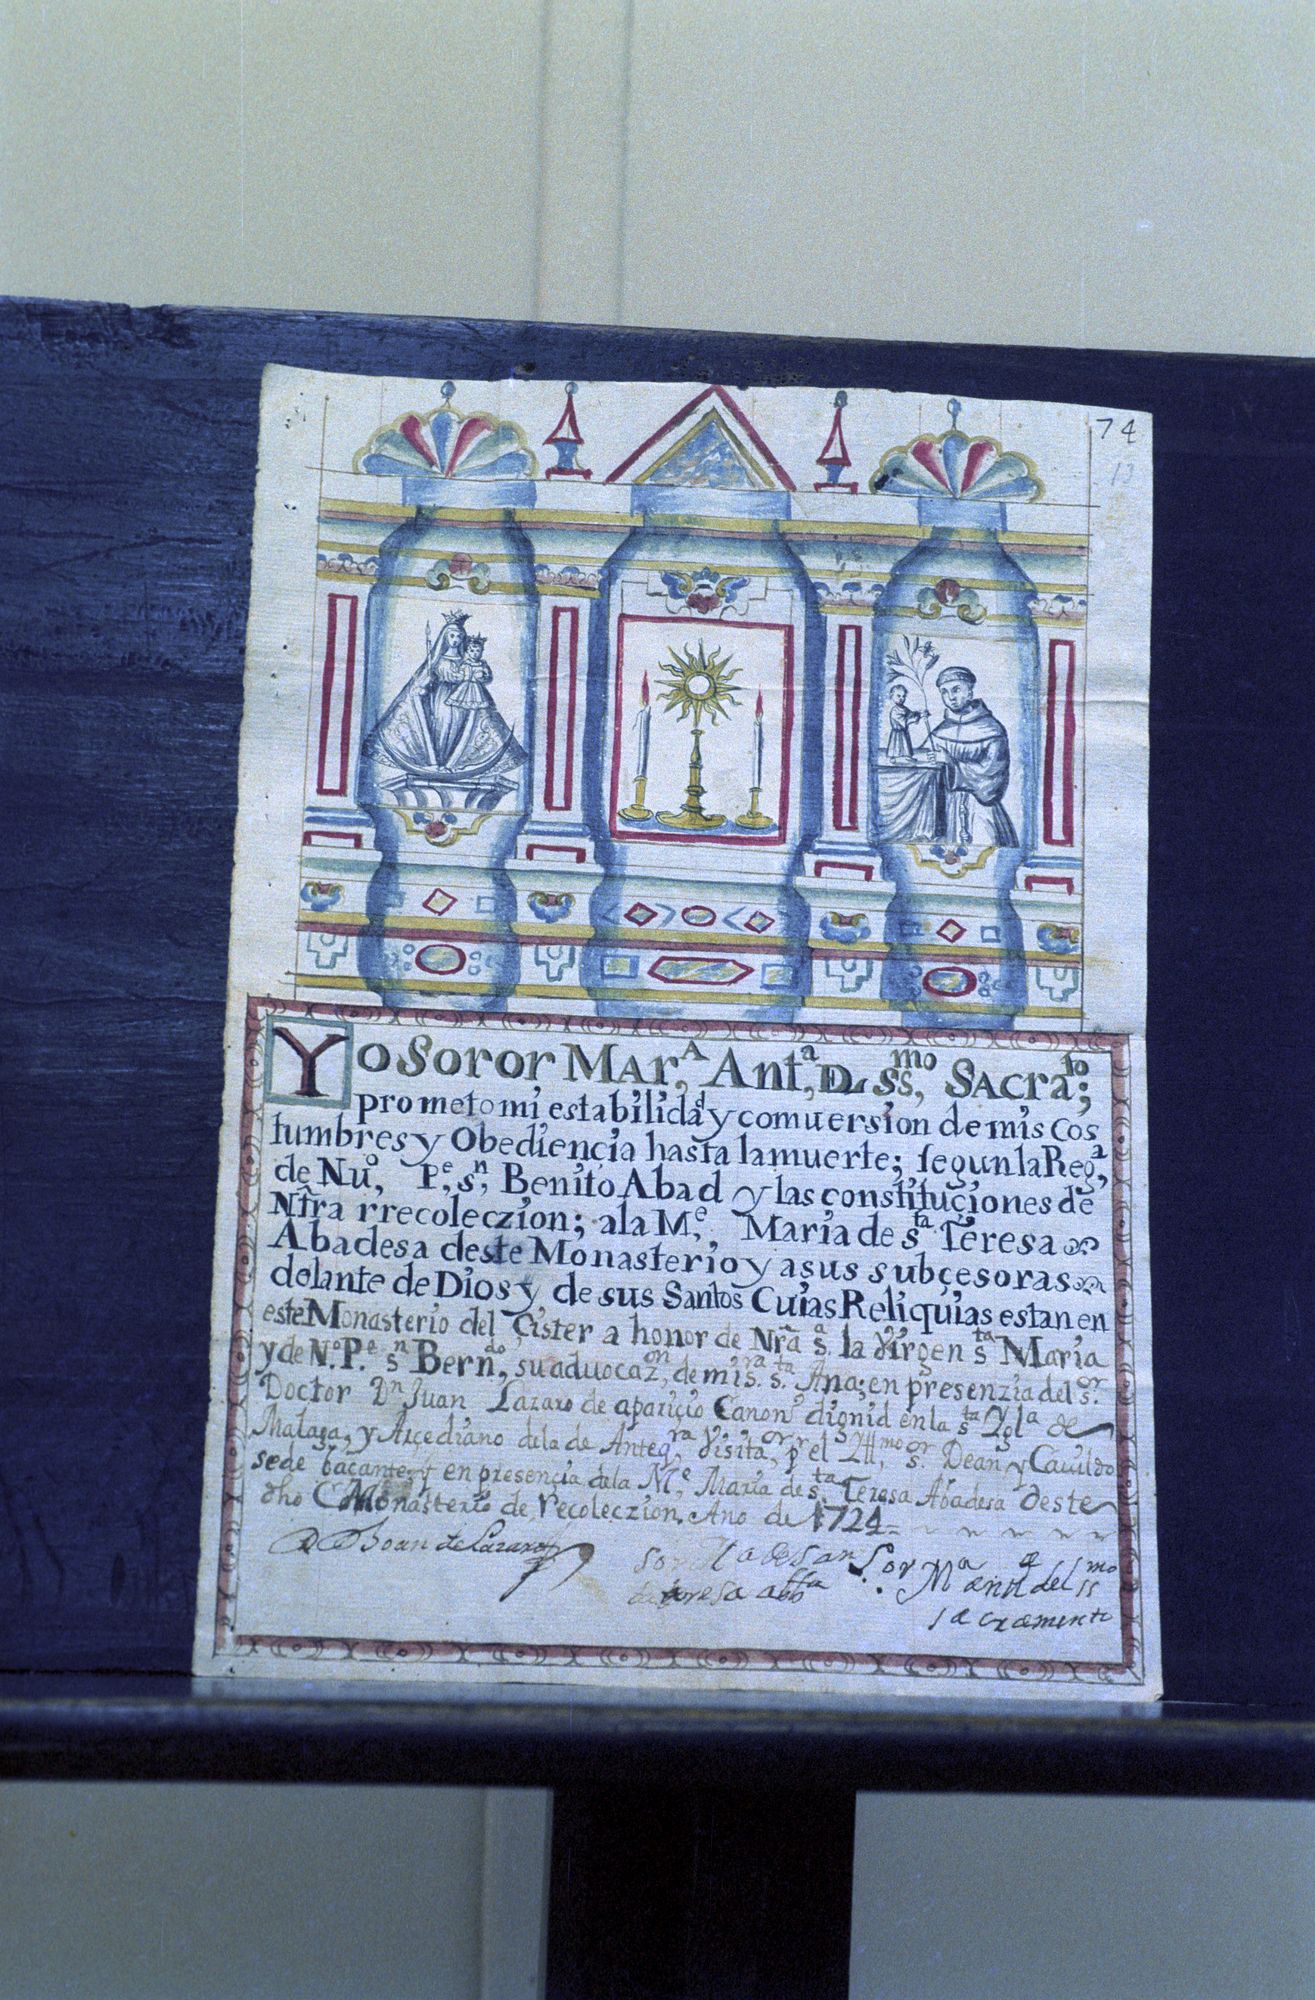 74
13
Yo Soror Mar,ª Ant,ª DL SS,mo Sacra,to;
prometo mi estabilidad y comuersion de mis Cos
tumbres y Obediençia hasta la muerte; segun la Reg,ª
de Nu,o Pe, sn, Benito Abad y las constituçiones de
Ntr̃a rrecoleczion; a la Me, Maria de sta Teresa
Abadesa deste Monasterio y a sus subçesoras
delante de Dios y de sus Santos Cuias Reliquias estan en
este Monasterio del Çister a honor de Nrã sª la Virgen sta Maria
y de No Pe sn Berndo, su aduocazon, de mi sra sta Ana; en presenzia del sor
Doctor Dn Juan Lazaro de apariçio Canono dignid en la sta Ygla de
Malaga, y Arçediano de la de Anteqra Visitaor, pr el Illmo sor Dean y Cauildo
sede baçante, y en presençia de la Me, Maria de sta Teresa Abadesa deste
dho Monasterio de recoleczion. Año de 1724
D Joan de Lazaro
sor Mª de san
teresa abbª
Sor Mª antª del ssmo
sacramento